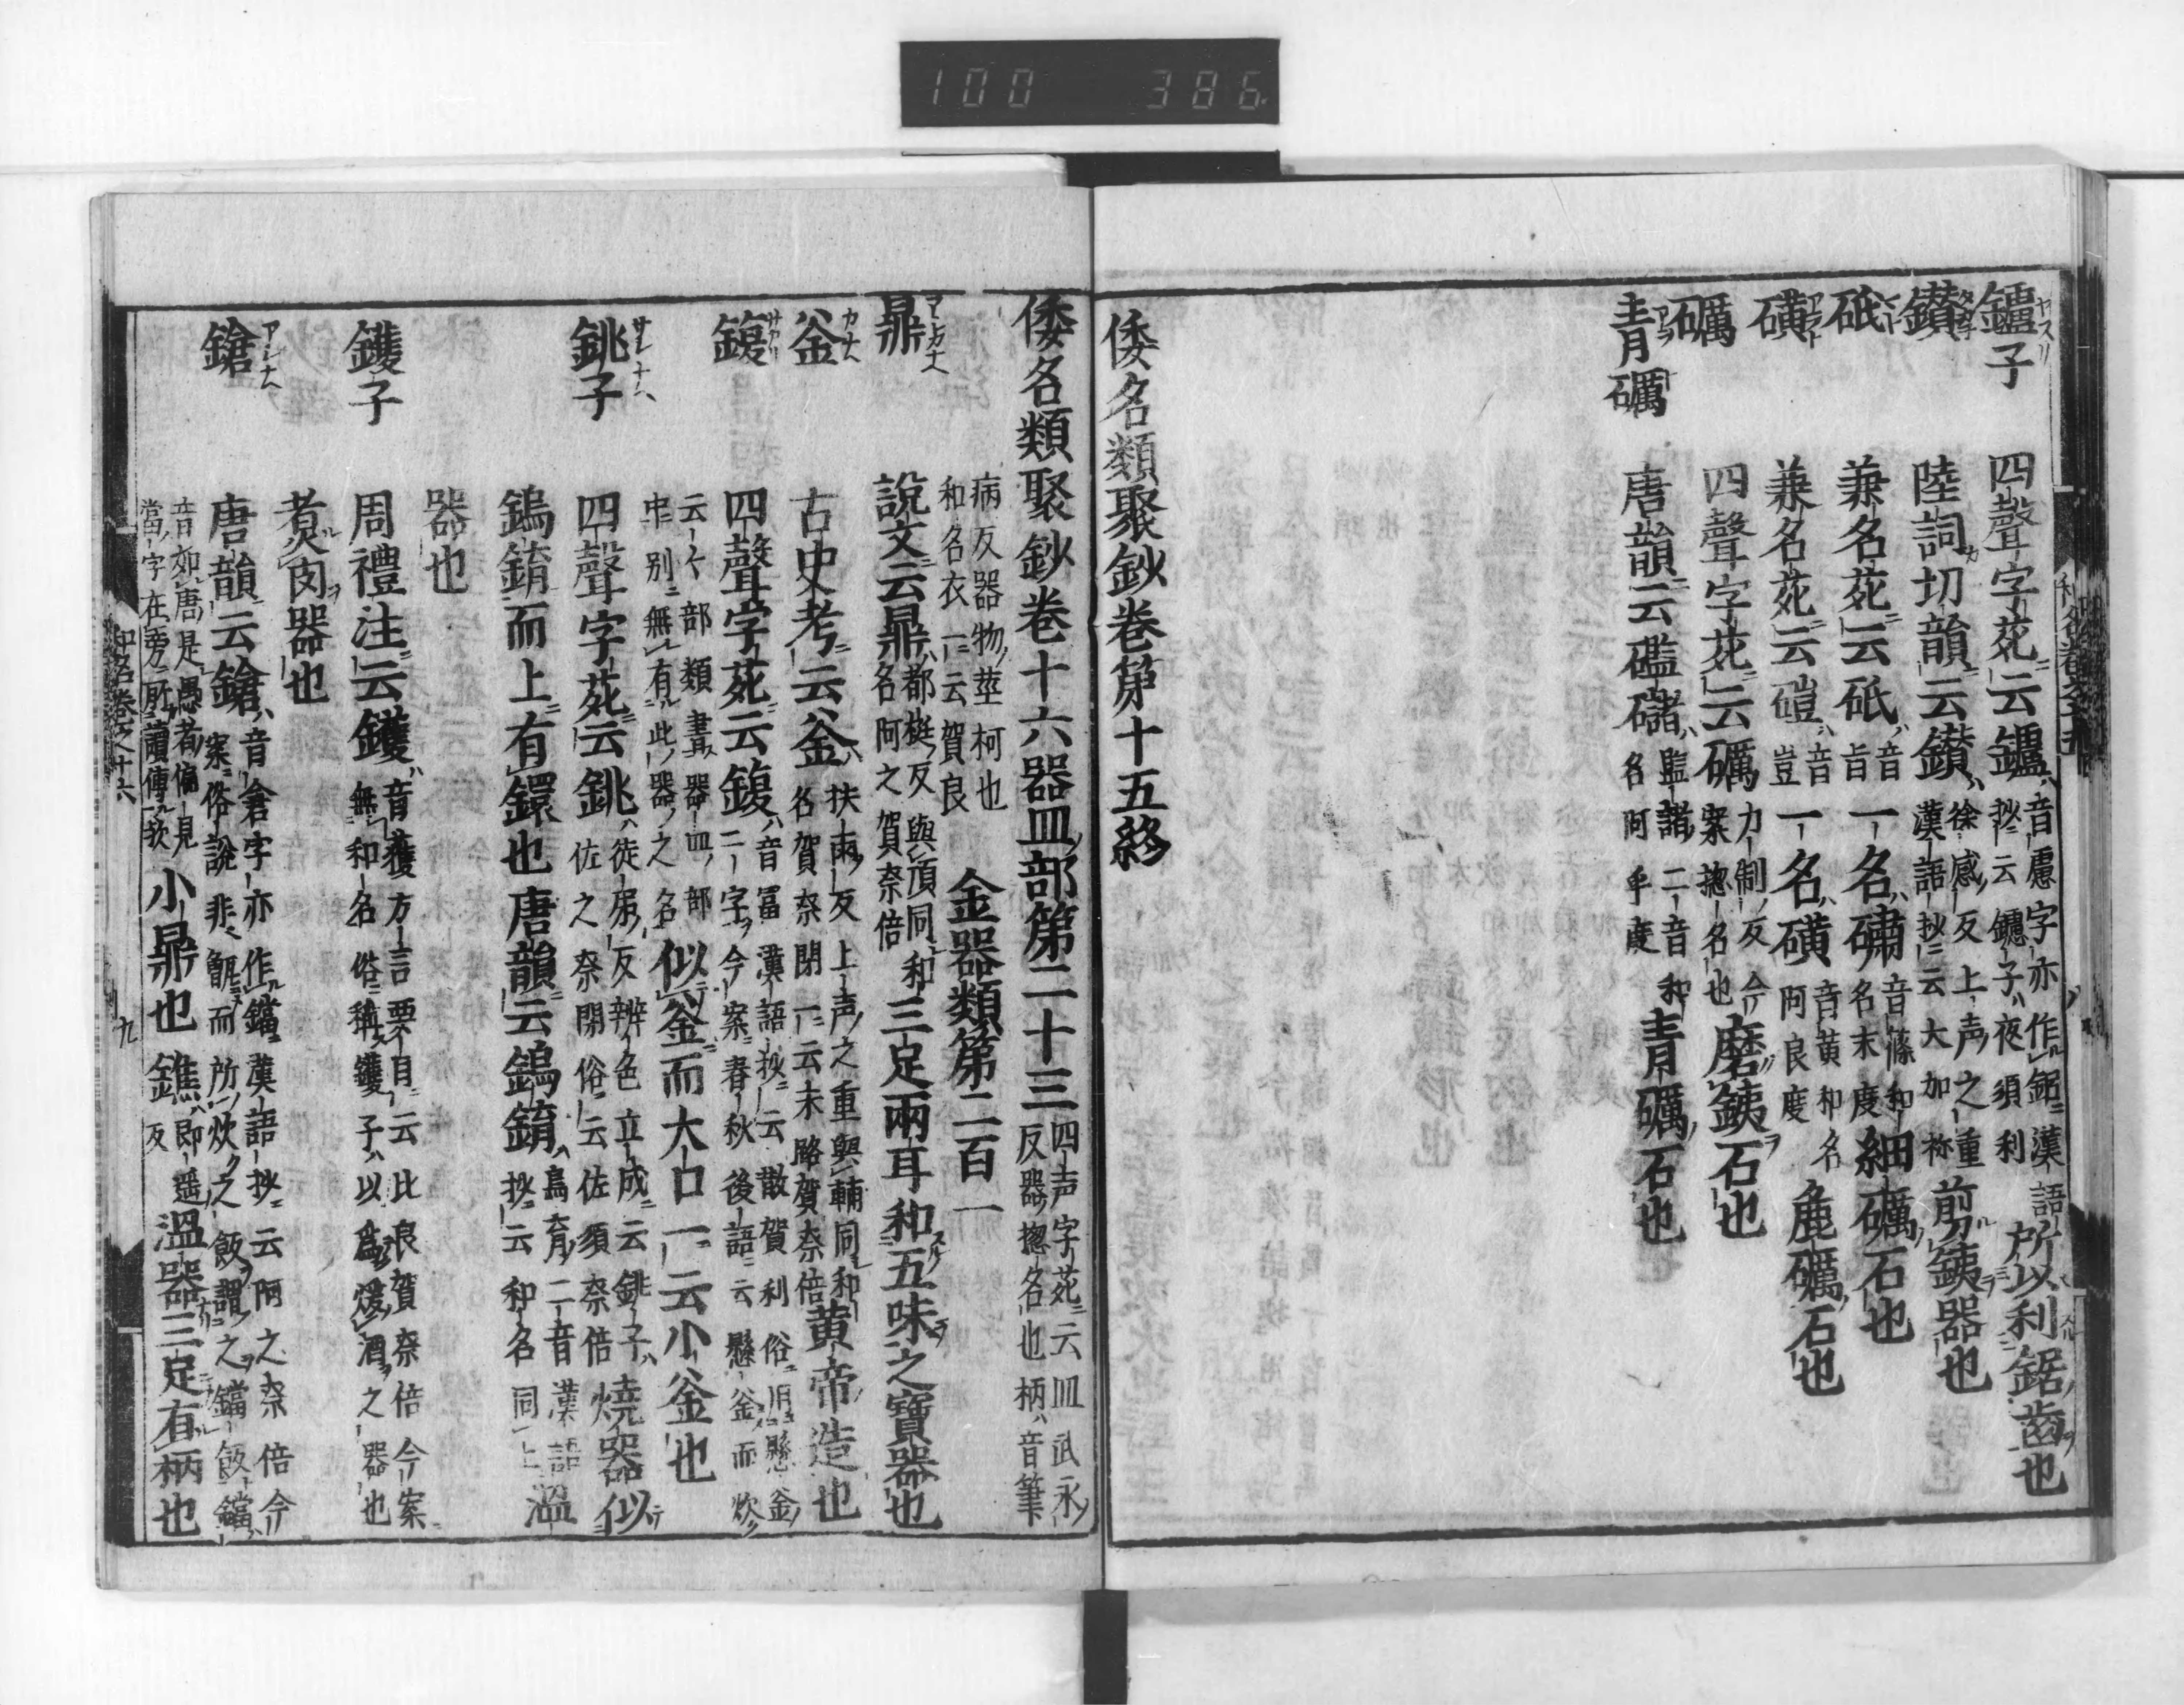 100 386
鑢子 四聲字苑云鑢音慮字亦作鋁漢語抄云鑢子夜須利所以利鋸齒也
鏨 陸詞切韻云鏨徐感反上声之重漢語抄云大加祢剪鐵器也
砥 兼名苑云砥音旨一名磠音篠和名末度細礪石也
磺 兼名苑云磑音豈一名磺音黄和名阿良度麁礪石也
礪 四聲字苑云礪力制反今案惣名也磨鐵石也
青礪 唐韻云礛䃴監諸二音和名阿乎度青礪石也
倭名類聚鈔卷第十五終
倭名類聚鈔卷十六器皿部第二十三四声字苑云皿武永反器惣名也柄音筆
病反器物莖柯也和名衣一云賀良 金器類第二百一
鼎 說文云鼎都梃反與頂同和名阿之賀奈倍三足兩耳和五味之寶器也
釜 古史考云釜扶雨反上声之重與輔同和名賀奈閇一云末路賀奈倍黄帝造也
鍑 四聲字苑云鍑音冨漢語抄云散賀利俗用懸釜二字今案春秋後語云懸釜而炊
云々部類書器皿部中別無有此器之名似釜而大口一云小釜也
銚子 四聲字苑云銚徒弔反辨色立成云銚子佐之奈閇俗云佐須奈倍燒器似
鎢錥而上有鐶也唐韻云鎢錥烏育二音漢語抄云和名同上溫
器也
鑊子 周禮注云鑊音獲方言要目云比良賀奈倍今案無和名俗稱鑊子以爲煖酒之器也
煑肉器也
鎗 唐韻云鎗音倉字亦作鐺漢語抄云阿之奈倍今案俗說非甑而所炊之飯謂之鐺飯鐺
音如唐是愚者偏見當字在旁所讀傳歟小鼎也鐎即遥反溫器三足有柄也
和名卷之十六 九